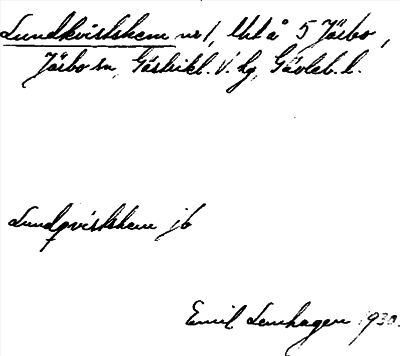 Lundkvistshem nr 1, Utl å 5 Järbo,
Järbo sn, Gästrikl. V. hg, Gävleb. l.
Lundqvistshem jb
Emil Lenhagen 1930.